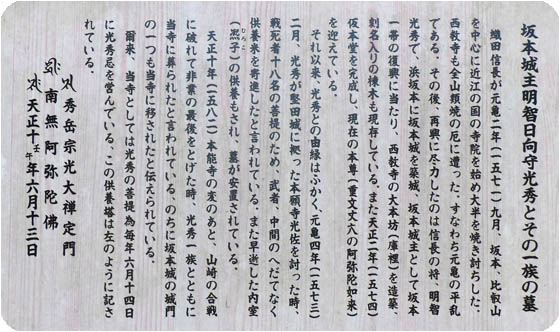 坂本城主明智日向守光秀とその一族の墓
織田信長が元亀二年(一五七一)九月、坂本、比叡山
を中心に近江の国の寺院を始め大半を焼き討ちした。
西教寺も全山類焼の厄に遭った。すなわち元亀の平乱
である。その後、再興に尽力したのは信長の将、明智
光秀で、浜坂本に坂本城を築城、坂本城主として坂本
一帯の復興に当たり、西教寺の大本坊(庫裡)を造築、
刻名入りの棟木も現存している。また天正二年(一五七四)
仮本堂を完成し、現在の本尊(重文丈六の阿弥陀如来)
を迎えている。
それ以来、光秀との由縁はふかく、元亀四年(一五七三)
二月、光秀が堅田城に拠った本願寺光佐を討った時、
戦死者十八名の菩提のため、武者、中間のへだてなく
供養米を寄進したと言われている。また早逝した内室
(熙子)の供養もされ、墓が安置されている。
ひろこ
天正十年(一五八二)本能寺の変のあと、山崎の合戦
に破れて非業の最後をとげた時、光秀一族とともに
当寺に葬られたと言われている。のちに坂本城の城門
の一つも当寺に移されたと伝えられている。
爾来、当寺としては光秀の菩提為毎年六月十四日
に光秀忌を営んでいる。この供養塔は左のように記さ
れている。
秀岳宗光大禅定門
南無阿弥陀佛
天正十壬午年六月十三日